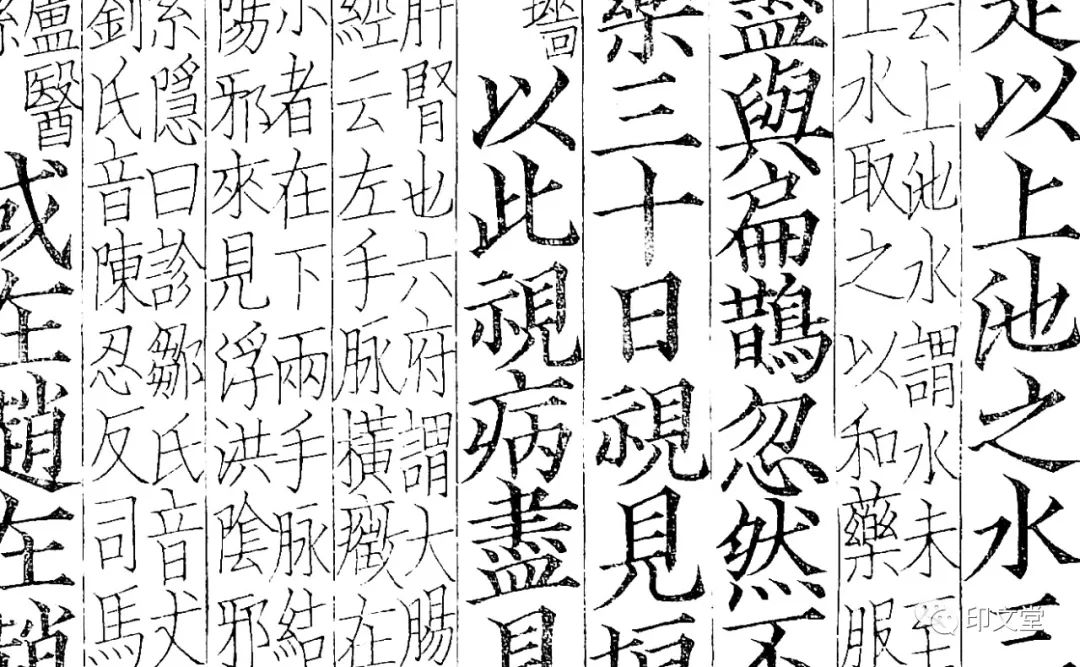 是以上池之水三
云上池水謂水未至
上水取之以和藥服
盡與扁鵲忽然不
藥三十日視見垣
墻以此視病盡見
肝腎也六府謂大腸
經云左手脉橫癥在
小者在下兩手脉結
陽邪來見浮洪陰邪
索隱曰診鄒氏音丈
劉氏音陳忍反司馬
盧醫
或在趙在趙
印文堂